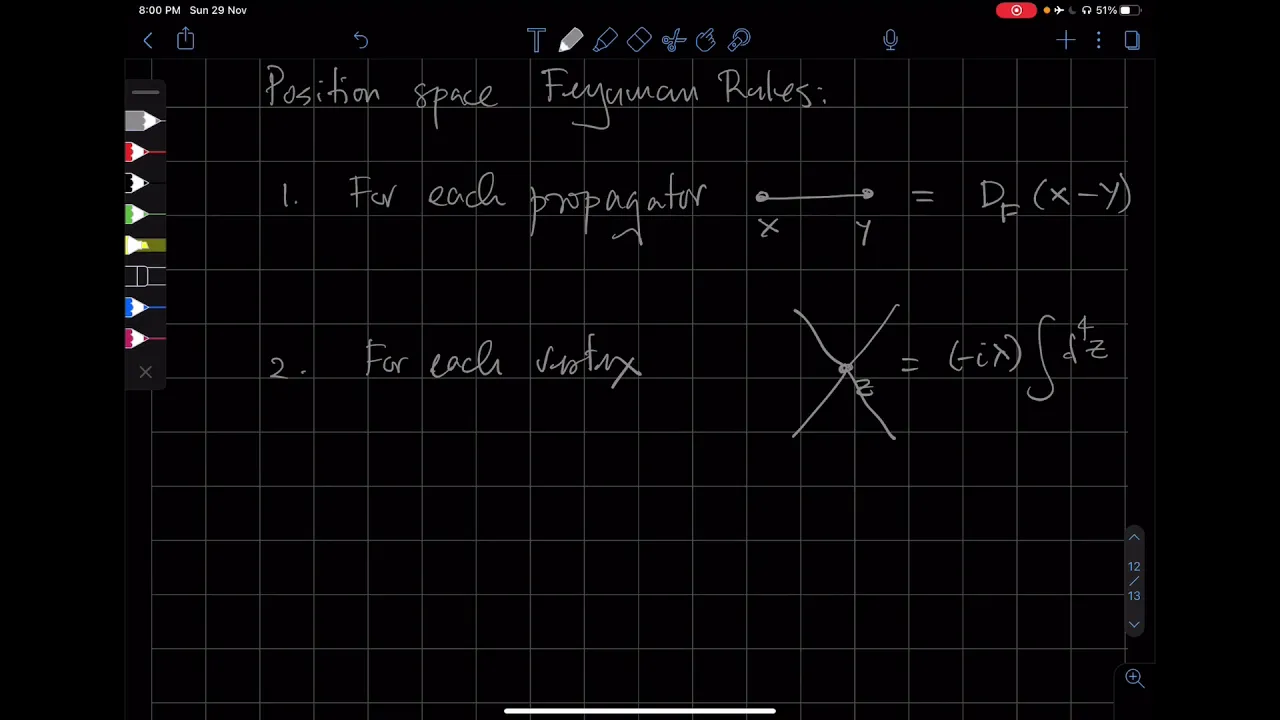 8:00 PM Sun 29 Nov 51%
T
Position space Feynman Rules:
1. For each propagator x y = D_F (x-y)
2. For each vertex z = (-iλ) ∫ d⁴z
12
/
13